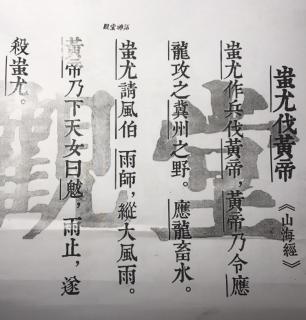 觀堂神話
蚩尤伐黃帝
《山海經》
蚩尤作兵伐黃帝，黃帝乃令應
龍攻之冀州之野。應龍畜水。
蚩尤請風伯 雨師，縱大風雨。
黃帝乃下天女曰魃，雨止，遂
殺蚩尤。
觀堂